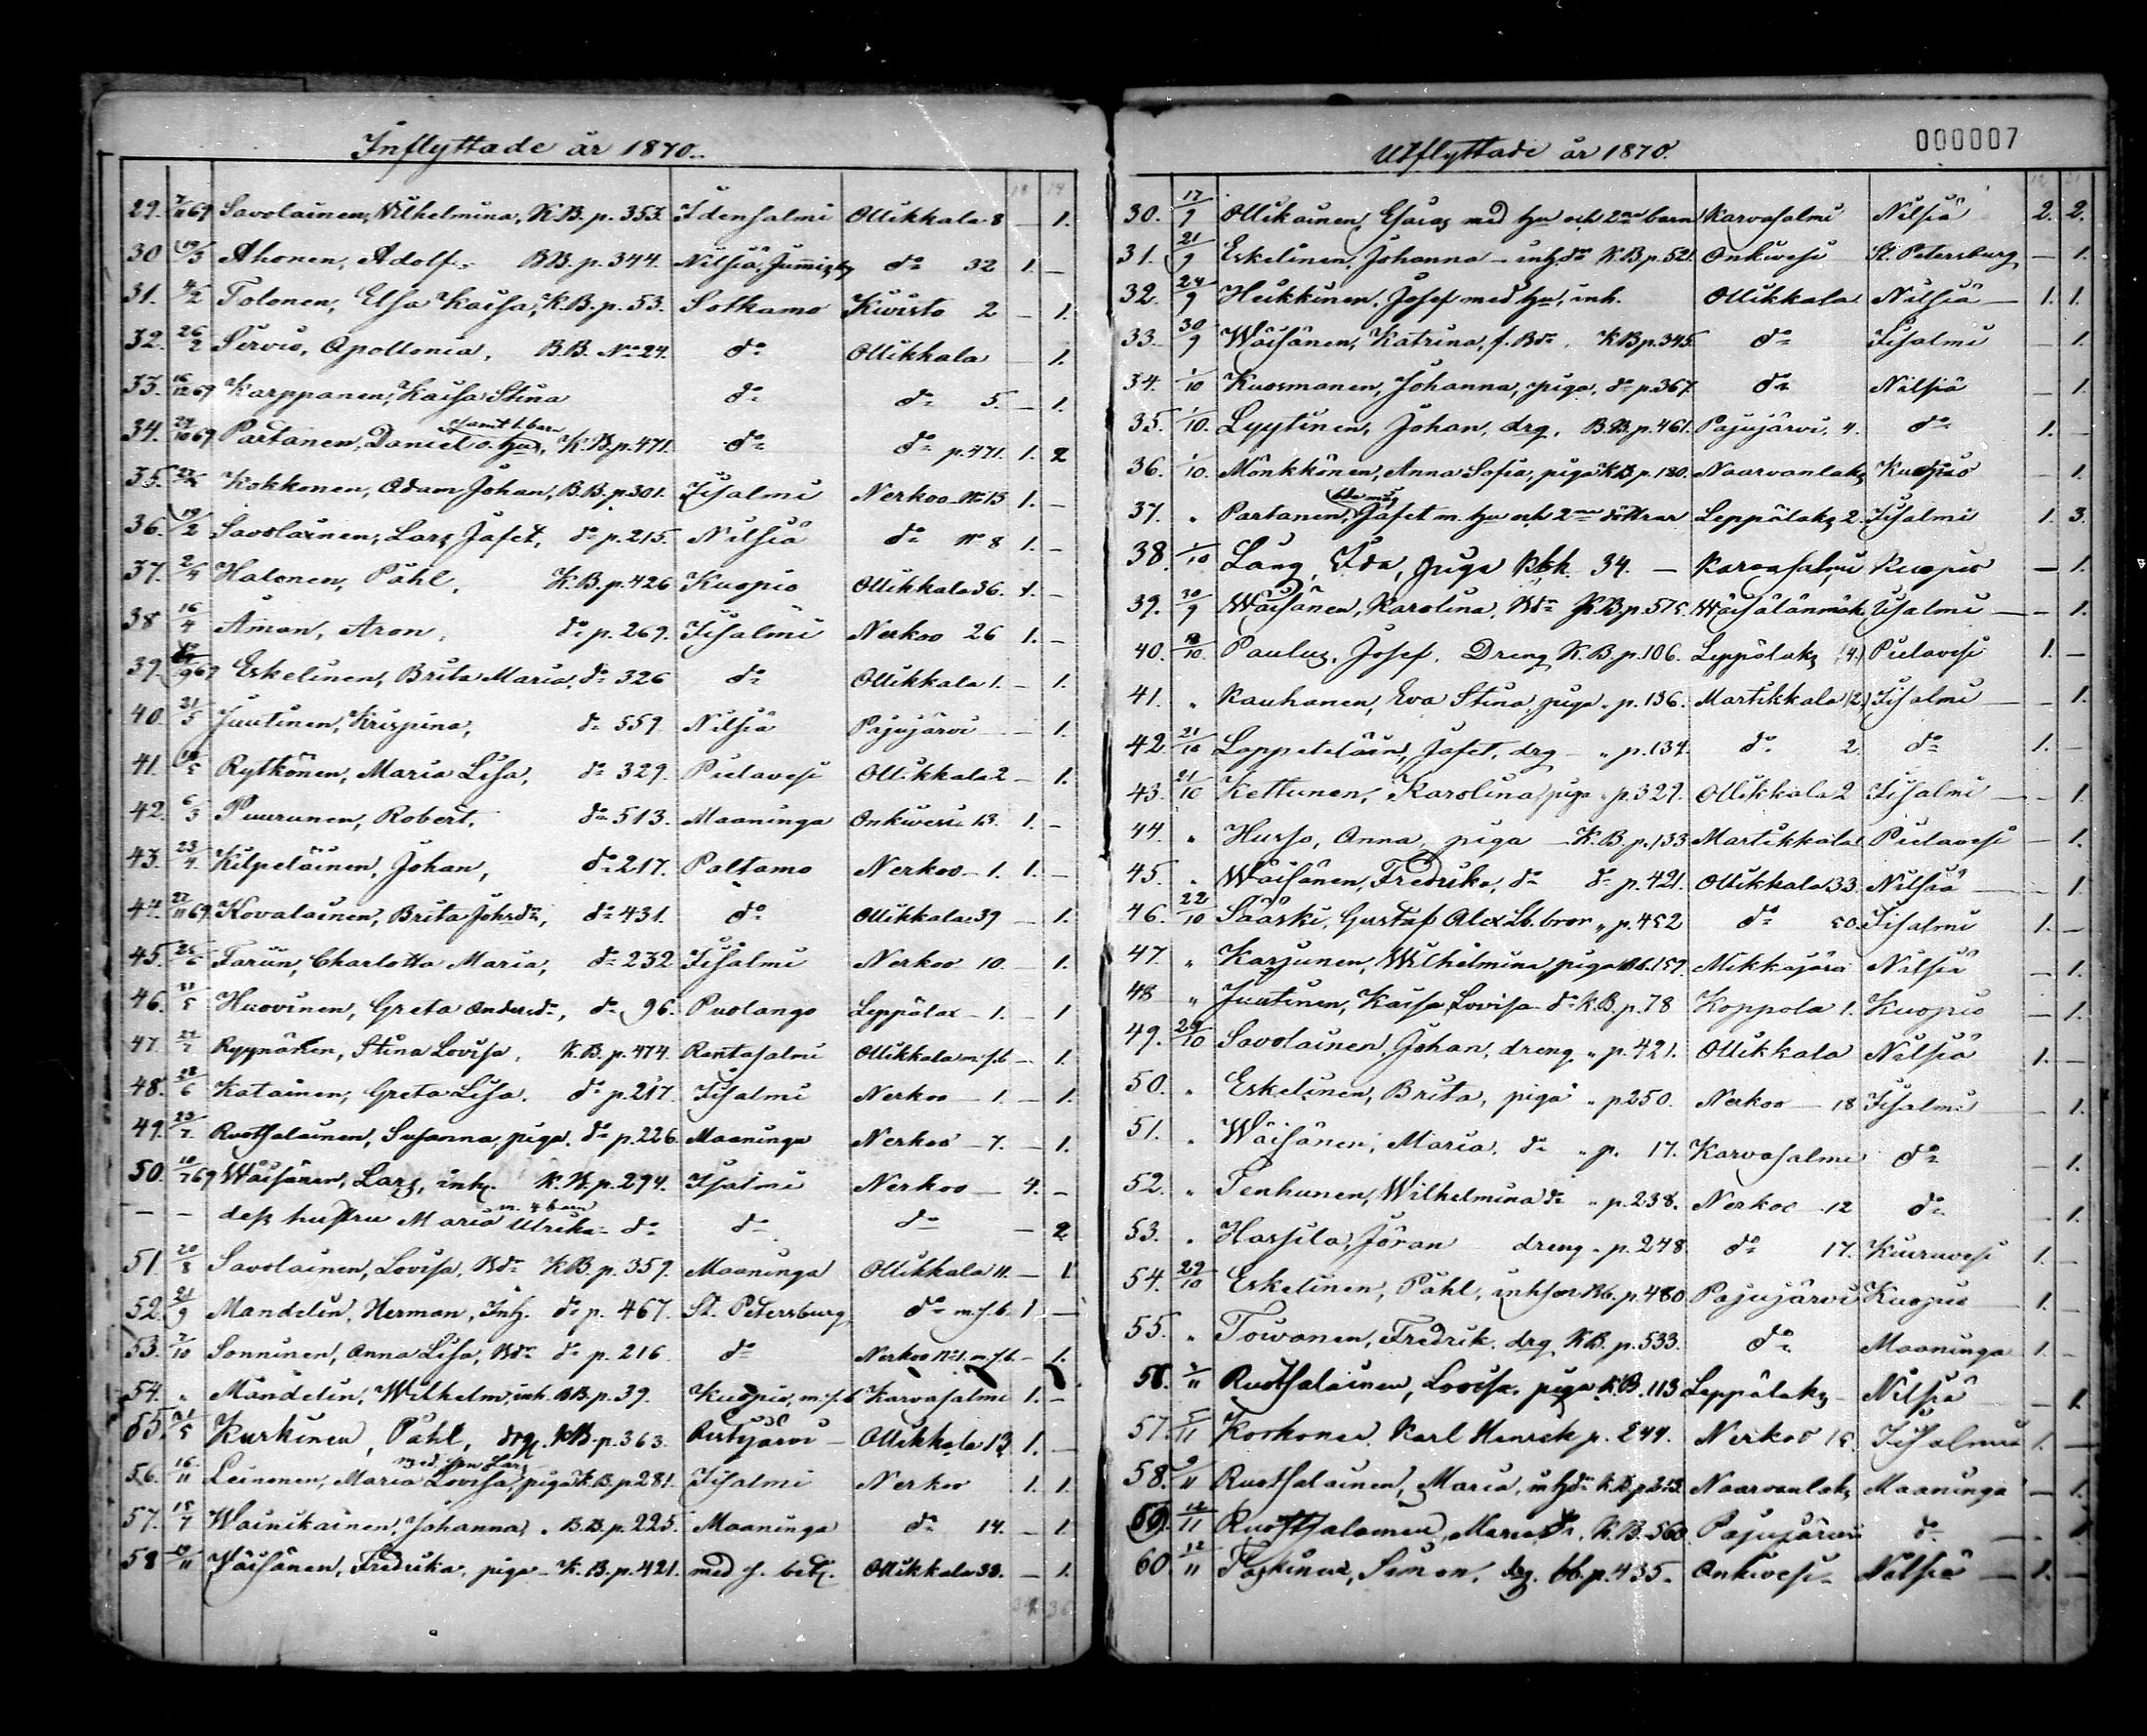 Inflyttade år 1870.
29. 7/11 69 Savolainen, Wilhelmina, K.B. p. 353. Idensalmi Ollikkala 8 — 1.
30 19/3 Ahonen, Adolf, BB. p. 344. Nilsiä, do 32 1. —
31. 4/2 Tolonen, Elsa Kaisa, K.B. p. 53. Sotkamo Kivisto 2 — 1.
32. 26/2 Servio, Apollonia, B.B. No 24. do Ollikkala — 1.
33. 16/12 69 Karppanen, Kaisa Stina do do 5. — 1.
samt 1. barn
34. 27/10 69 Partanen, Daniel o. hu, K.B. p. 471. do do p. 471. 1. 2
35. Kokkonen, Adam Johan, B.B. p. 301. Iisalmi Nerkoo No 13 1. —
36. 19/2 Savolainen, Lars Jafet, do p. 215. Nilsiä do No 8 1. —
37. 2/4 Halonen, Påhl, K.B. p. 426 Kuopio Ollikkala 36. 1. —
38 16/4 Åman, Aron, do p. 269. Iisalmi Nerkoo 26 1. —
39. Eskelinen, Brita Maria, do 326 do Ollikkala 1. — 1.
40. 21/5 Juutinen, Krispina, do 559. Nilsiä Pajujärvi — 1.
41. 19/5 Rytkönen, Maria Lisa, do 329. Pielavesi Ollikkala 2 — 1.
42. 6/3 Puurunen, Robert, do 513. Maaninga Onkivesi 13. 1. —
43. 23/4. Kilpeläinen, Johan, do 217. Paltamo Nerkoo — 1. 1. —
44. 27/11 69. Kovalainen, Brita Johsdr, do 431. do Ollikkala 39 — 1.
45. 25/6 Farün, Charlotta Maria, do 232 Iisalmi Nerkoo 10. — 1.
46. 31/5 Huovinen, Greta Andersdr, do 96. Puolango Leppälax — 1. — 1
47. 24/7 Ryynänen, Stina Lovisa, K.B. p. 474. Rantasalmi Ollikkala m. f. b — 1.
48. 28/6 Katainen, Greta Lisa. do p. 217. Iisalmi Nerkoo — 1. — 1.
49. 23/7. Ruotsalainen, Susanna, piga, do p. 226. Maaninga Nerkoo — 7. — 1.
50. 10/7 69 Wäisänen, Lars, inh. K.B. p. 294. Iisalmi Nerkoo — 4. —
m. 4 barn
— — dess hustru Maria Ulrika do do do — 2
51. 20/8 Savolainen, Lovisa, Bdr K.B. p. 359. Maaninga Ollikkala 11. — 1
52. 21/9 Mandelin, Herman, Inh. do p. 467. St. Petersburg do m. f. b. 1 —
53. 7/10 Sonninen, Anna Lisa, Bdr do p. 216 do Nerkoo No 1. m. f. b. — 1.
54. „ Mandelin, Wilhelm, inh. BB. p. 39. Kuopio, m. f. b Karvasalmi 1. —
55. 21/5 Kurkinen, Påhl, drg. KB. p. 363. Ristijärvi — Ollikkala 13 1. —
med son Lars
56. 16/11 Leinonen, Maria Lovisa, piga K.B. p. 281. Iisalmi Nerkoo 1. 1.
57. 15/7 Wainikainen, Johanna, B.B. p. 225. Maaninga do 14. — 1.
58 19/11 Väisänen, Fredrika, piga K.B. p. 421. med f. bet. Ollikkala 33. — 1.
Utflyttade år 1870.
000007
30. 17/9 Ollikainen, Esaias med hu och 2ne barn Karvasalmi Nilsiä 2. 2.
31. 21/9 Eskelinen, Johanna — inhdr K.B. p. 521. Onkivesi St. Petersburg — 1.
32. 24/9 Heikkinen, Josef med hu, inh. Ollikkala Nilsiä — 1. 1.
33. 30/9 Wäisänen, Katrina, f. Bdr. K.B. p. 345. do Iisalmi — 1.
34. 1/10 Kuosmanen, Johanna, piga, do p. 367. do Nilsiä — 1.
35. 1/10. Lyytinen, Johan, drg. B.B. p. 461. Pajujärvi, 4. do 1. —
36. 1/10. Mönkkönen, Anna Sofia, piga K.B. p. 180. Naarvanlaks Kuopio — 1.
37. „ Partanen, Jafet m. hu och 2ne döttrar Leppälaks 2. Iisalmi 1. 3.
38. 1/10 Lång, Ida, piga Kbk. 34. — Karvasalmi Kuopio — 1.
39. 30/9 Wäisänen, Karolina, Bdr K.B. p. 575. Wäisälänmäk. Iisalmi — 1.
40. /10. Paulus, Josef. Dreng K.B. p. 106. Leppälaks (4.) Pielavesi 1. —
41. „ Kauhanen, Eva Stina, piga „ p. 136. Martikkala (2.) Iisalmi — 1.
42. 21/10 Lappeteläin, Jafet, drg „ p. 134. do 2. do 1. —
43. 21/10 Kettunen, Karolina, piga „ p. 329. Ollikkala 2 Iisalmi — 1.
44. „ Husso, Anna, piga — K.B. p. 133 Martikkala Pielavesi — 1.
45. „ Wäisänen, Fredrika, do do p. 421. Ollikkala 33. Nilsiä — 1.
46. 22/10 Sääski, Gustaf Alex Lb. bror „ p. 452 do 50. Iisalmi 1. —
47. „ Karjunen, Wilhelmina piga Bb. 159. Mikkajärvi Nilsiä — 1.
48 „ Juutinen, Kaisa Lovisa do K.B. p. 78 Koppola 1. Kuopio — 1.
49. 29/10 Savolainen, Johan, dreng „ p. 421. Ollikkala Nilsiä 1. —
50. „ Eskelinen, Brita, piga „ p 250. Nerkoo — 18 Iisalmi — 1.
51. „ Wäisänen, Maria, do „ p. 17. Karvasalmi do — 1.
52. „ Penhunen, Wilhelmina do „ p. 238. Nerkoo 12 do — 1.
53. „ Hassila, Jöran dreng „ p. 248. do 17. Kiuruvesi 1. —
54. 29/10 Eskelinen, Påhl, inhson Kb. p. 480 Pajujärvi Kuopio 1. —
55. „ Toivanen, Fredrik, drg, K.B. p. 533. do Maaninga 1. —
56. /11 Ruotsalainen, Lovisa, piga K.B. 113 Leppälaks — Nilsiä — 1.
57. /11 Korhonen Karl Henrik p. 244. Nerkoo 15 Iisalmi 1. —
58. 9/11 Ruotsalainen, Maria, inhdr K.B. p 213. Naarvanlaks Maaninga — 1.
59. 12/11 Ruottsalainen, Maria, K.B. 560 Pajujärvi do — 1
60. 12/11 Simon, drg. bb. p. 435. Onkivesi — Nilsiä — 1. —